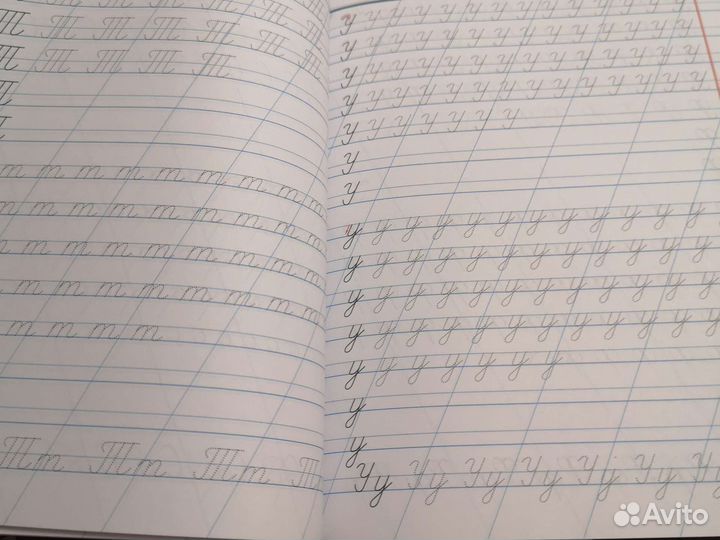 Т Т Т
Т Т Т Т Т Т Т
Т Т Т Т Т
Т
Т
т т т т т т т т
т т т т т т т т
т т т т т т т т
т т т т т т т т
т т т т
Тт Тт Тт Т
У У У У У У У У У У У У У У
У У У У У У У У У У У У У У
У У У У У У У У У У У У У У
У У У У У У У У У У У У У У
У У У У У У У
У
У
у у у у у у у у у у у у
у у у у у у у у у у у у
у у у у у у у у у у у у
у у у у у у у у у у у у
у у у у у у у
у
у
Уу Уу Уу Уу Уу Уу Уу
Avito